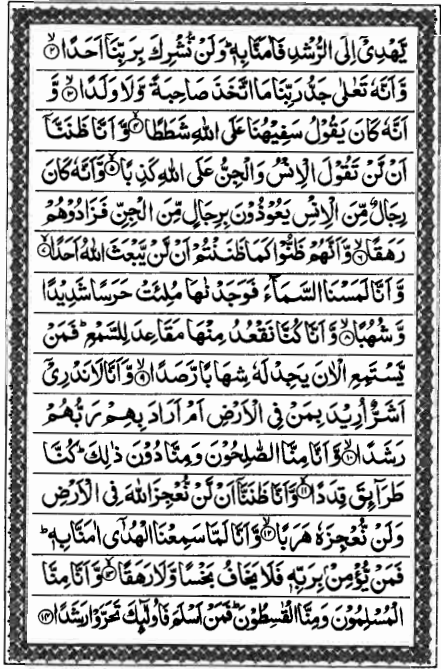 يَّهْدِىْٓ اِلَى الرُّشْدِ فَاٰمَنَّا بِهٖ ؕ وَلَنْ نُّشْرِكَ بِرَبِّنَاۤ اَحَدًا ۙ﴿۲﴾
وَّاَنَّهٗ تَعٰلٰى جَدُّ رَبِّنَا مَا اتَّخَذَ صَاحِبَةً وَّلَا وَلَدًا ۙ﴿۳﴾ وَّ
اَنَّهٗ كَانَ يَقُوْلُ سَفِيْهُنَا عَلَى اللّٰهِ شَطَطًا ۙ﴿۴﴾ وَّاَنَّا ظَنَنَّاۤ
اَنْ لَّنْ تَقُوْلَ الْاِنْسُ وَالْجِنُّ عَلَى اللّٰهِ كَذِبًا ۙ﴿۵﴾ وَّاَنَّهٗ كَانَ
رِجَالٌ مِّنَ الْاِنْسِ يَعُوْذُوْنَ بِرِجَالٍ مِّنَ الْجِنِّ فَزَادُوْهُمْ
رَهَقًا ۙ﴿۶﴾ وَّاَنَّهُمْ ظَنُّوْا كَمَا ظَنَنْتُمْ اَنْ لَّنْ يَّبْعَثَ اللّٰهُ اَحَدًا ۙ﴿۷﴾
وَّاَنَّا لَمَسْنَا السَّمَآءَ فَوَجَدْنٰهَا مُلِئَتْ حَرَسًا شَدِيْدًا
وَّشُهُبًا ۙ﴿۸﴾ وَّاَنَّا كُنَّا نَقْعُدُ مِنْهَا مَقَاعِدَ لِلسَّمْعِ ؕ فَمَنْ
يَّسْتَمِعِ الْاٰنَ يَجِدْ لَهٗ شِهَابًا رَّصَدًا ۙ﴿۹﴾ وَّاَنَّا لَا نَدْرِىْۤ
اَشَرٌّ اُرِيْدَ بِمَنْ فِى الْاَرْضِ اَمْ اَرَادَ بِهِمْ رَبُّهُمْ
رَشَدًا ۙ﴿۱۰﴾ وَّاَنَّا مِنَّا الصّٰلِحُوْنَ وَمِنَّا دُوْنَ ذٰلِكَ ؕ كُنَّا
طَرَآئِقَ قِدَدًا ۙ﴿۱۱﴾ وَّاَنَّا ظَنَنَّاۤ اَنْ لَّنْ نُّعْجِزَ اللّٰهَ فِى الْاَرْضِ
وَلَنْ نُّعْجِزَهٗ هَرَبًا ۙ﴿۱۲﴾ وَّاَنَّا لَمَّا سَمِعْنَا الْهُدٰٓى اٰمَنَّا بِهٖ ؕ
فَمَنْ يُّؤْمِنْۢ بِرَبِّهٖ فَلَا يَخَافُ بَخْسًا وَّلَا رَهَقًا ۙ﴿۱۳﴾ وَّاَنَّا مِنَّا
الْمُسْلِمُوْنَ وَمِنَّا الْقٰسِطُوْنَ ؕ فَمَنْ اَسْلَمَ فَاُولٰٓئِكَ تَحَرَّوْا رَشَدًا ﴿۱۴﴾